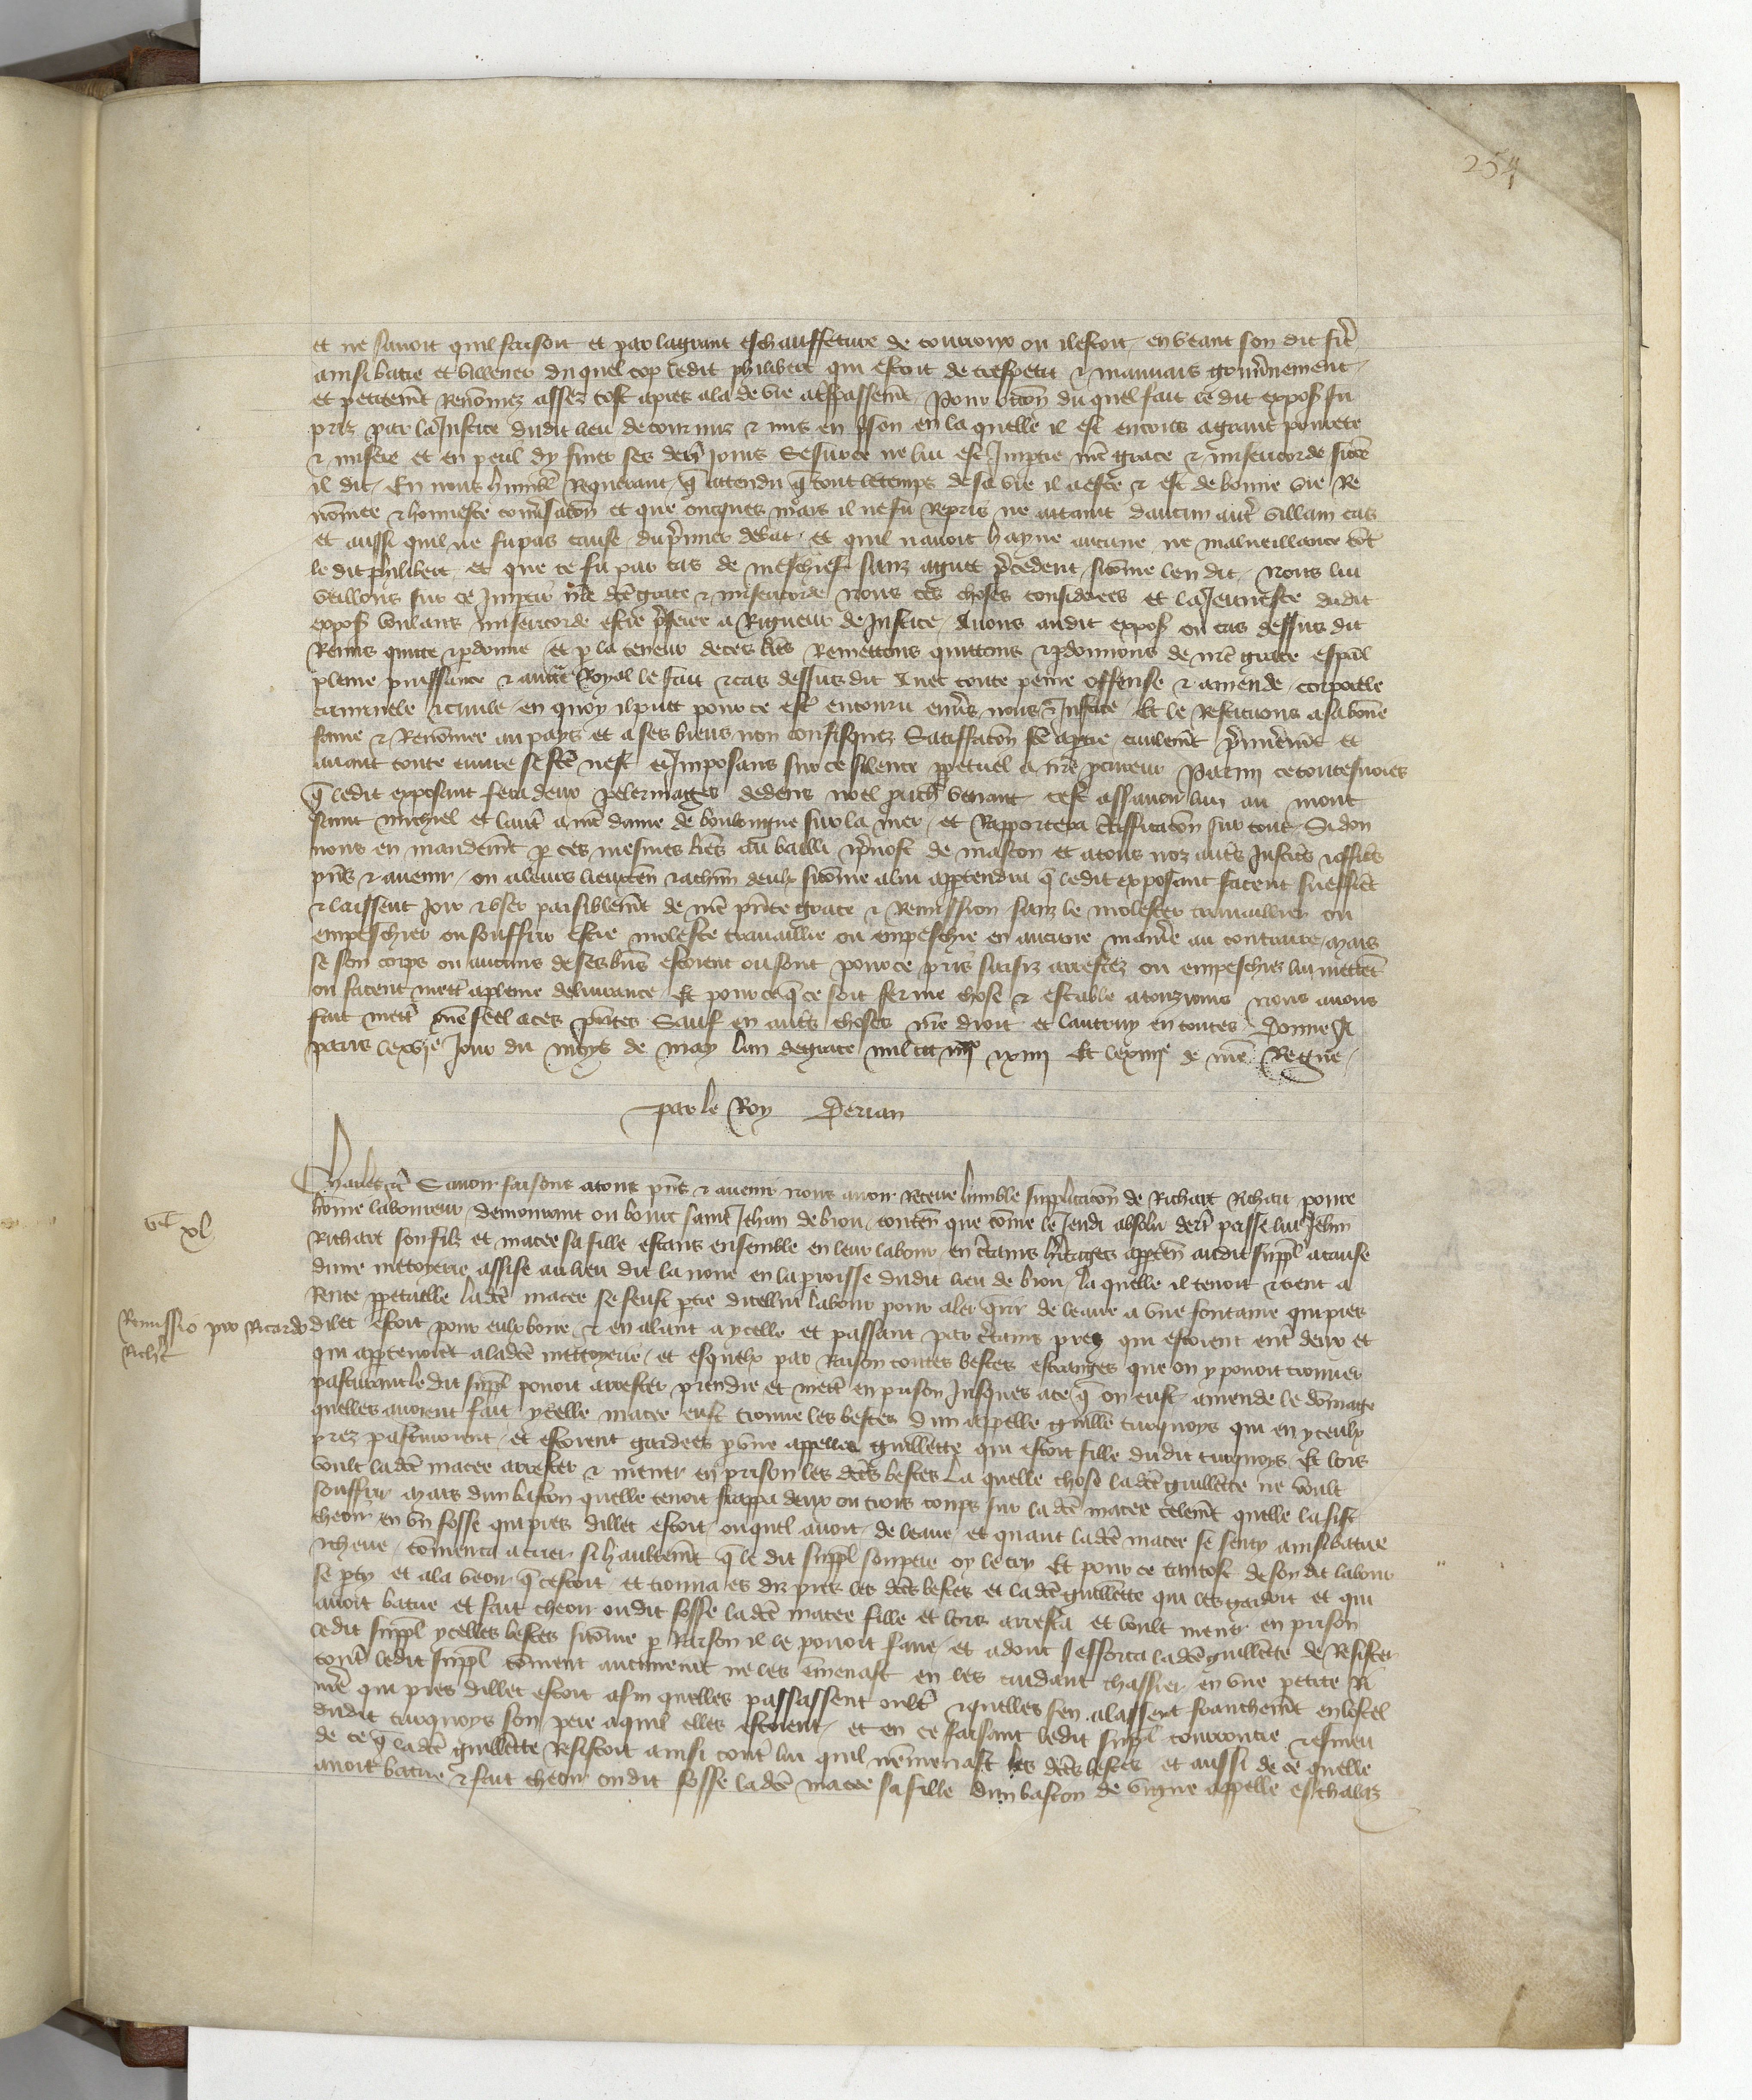 254
et ne savoit quil faisoit et par la grant eschauffeture de courroux ou il estoit en veant son dit frē
ainsi batre et villener du quel cop ledit philibert qui estoit de trespetit & mauvais gouvnement
et petitemt Renōmez assez tost apres ala de vie a trespassemt Pour occōn du quel fait ledit expos fu
pris par la Justice dudit lieu de & mis en pson en la quelle il est encores a grant povrete
& misere et en peril dy finer ses derr jours Se sur ce ne lui est Impartie nrē grace & misericorde sicōe
il dit En nous humblemt Requerant q attendu q tout letemps de sa vie il a este & est de bonne vie Re
nōmee & honneste convsacōn et que oncques mais il ne fu Repris ne attaint daucun autre villain cas
et aussi quil ne fu pas cause du pmier debat et quil navoit hayne aucune ne malveillance cont
le dit philibert et que ce fu par cas de meschief sanz aguet pcedent sicōme len dit Nous lui
veillons sur ce Impartir nrē dcē grace & misericorde nous ces choses considerees et la Jeunesce dudit
expos voulans misericorde estre pferee a Rigueur de Justice Avons audit expos ou cas dessus dit
Remis quitte & pdonne et p la teneur de ces lrēs Remettons quittons & pdonnons de nrē grace espāl
plaine puissance & auctē Royal le fait & cas dessus dit Avec toute peine offense & amende corporelle
criminele & civile en quoy il puet pour ce est encouru envs nous & Justice Et le Restituons a sa bōne
fame & Renōmee au pays et a ses biens non confisquez Satisfacōn fcē a ptie civilemt pmieremt et
avant toute euvre se fcē nest et Imposans sur ce silence ppetuel a nrē pcureur Parmi ce toutesvoies
q ledit exposant fera deux pelerinages dedens noel pūch venant cest assavoir lun au mont
saint michiel et lautr a nrē dame de boulongne sur la mer et Rapportera ctifficacōn sur tout Si don
nons en mandemt p ces mesmes lrēs au bailli & pvost de mascon et a tous noz autrs Justics & officrs
pns & avenir ou a leurs lieuxten & a chūn deulx sicōme a lui apptendra q ledit exposant facent sueffrēt
& laissent Joir & user paisiblemt de nrē pnte grace & Remission sanz le molester travaillier ou
empeschier ou souffrir estre moleste travaillie ou empeschie en aucune maniē au contraire mais
se son corps ou aucuns de ses bns estoient ou sont pour ce pris saisiz arrestez ou empeschiez lui mettēt
ou facent mettr a plaine delivrance Et pour ce q ce soit ferme chose & estable a tousjours nous avons
fait mettr nrē seel a ces pntes Sauf en autrs choses nrē droit et lautruy en toutes Donne A
paris le xvjē Jour du moys de may lan de grace mil ccc iiijxx xiiij Et le xiiijē de nrē Regne
par le Roy Derian
Charles &c Savoir faisons a tous pns & avenir nous avoir Receue lumble supplicacōn de Richart Richart povre
hōme laboureur demourant ou bourc saint Jehan de brion conten que cōme le Jeudi absolu derr passe lui Jehan
Richart son filz et macee sa fille estans ensemble en leur labour en ctains hitages apptēn audit suppl a cause
dune mectoyerie assise au lieu dit la noue en la proisse dudit lieu de brion la quelle il tenoit & tient a
Rente ppetuelle lad dcē macee se feust ptie dicellui labour pour aler querir de leaue a une fontaine qui pres
dilec estoit pour eulx boire & en alant a ycelle et passant par ctains prez qui estoient entr deux et
qui apptenoiēt a la dcē mectoyerie et esquelx par Raison toutes bestes estranges que on y povoit trouver
pasturant le dit suppl povoit arrester prendre et mettr en prison Jusques a ce q on eust amende le dōmage
quelles avoient fait ycelle macee eust trouve les bestes dun appelle guillē turquoys qui en yceulx
prez pasturoient et estoient gardees p une appellee guillemette qui estoit fille dudit turquoys Et lors
voult la dcē macee arrester & mener en prison les dcēs bestes La quelle chose la dcē guillemette ne voult
souffrir mais dun baston quelle tenoit frappa deux ou trois coups sur la dcē macee telemt quelle la fist
cheoir en un fosse qui pres dillec estoit ouquel avoit de leaue et quant la dcē macee se senty ainsi batue
& cheue cōmenca a crier si haultemt q le dit suppl son pere oy le cry Et pour ce tantost de son dit labour
se pty et ala veoir q cestoit et trouva es diz prez les dcēs bestes et la dcē guillemette qui les gardoit et qui
avoit batue et fait cheoir oudit fosse la dcē macee fille et lors arresta et voult mener en prison
ledit suppl ycelles bestes sicōme p Raison il le povoit faire et adonc sefforca la dcē guillemette de Resister
contr ledit suppl cōment aucunemt ne les ēmenast en les cuidant chassier en une petite Ri
viē qui pres dillec estoit afin quelles passassent oultr & quelles sen alassent franchemt en lostel
dudit turquoys son pere a quil elles estoient et en ce faisant ledit suppl courroucie & esmeu
de ce q la dcē guillemette Resistoit ainsi contr lui quil nēmenast les dcēs bestes et aussi de ce quelle
avoit batue & fait cheoir oudit fosse la dcē macee sa fille dun baston de vigne appelle eschalaz
xl
Remissio pro Ricardo
Richart